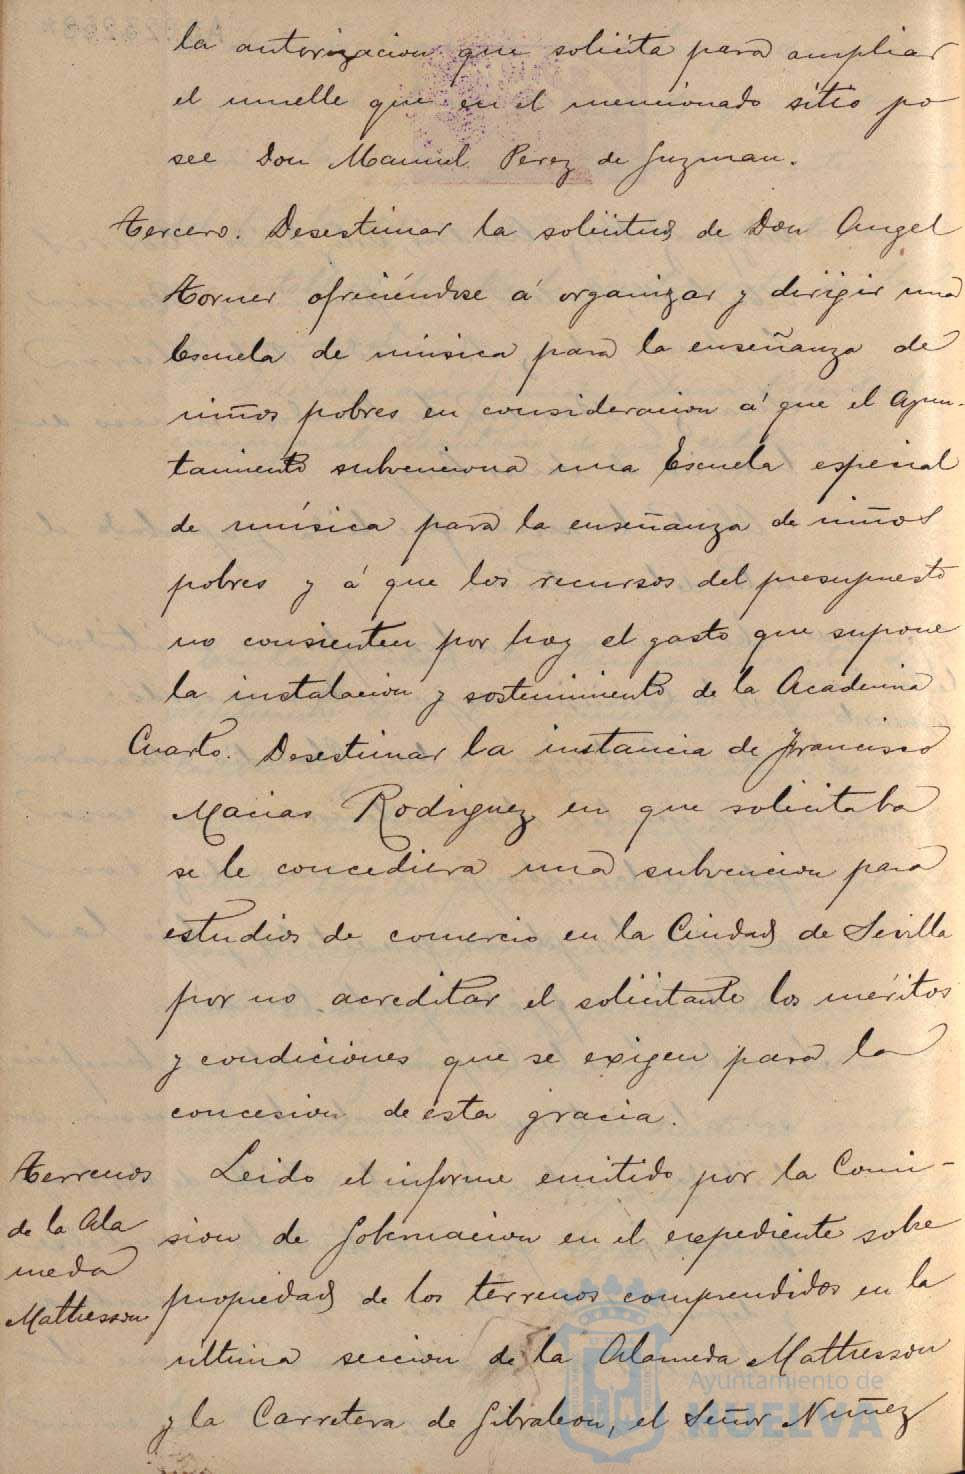 la autorizacion que solicita para ampliar
el muelle que en el mencionado sitio po
see Don Manuel Perez de Guzman.
Tercero. Desestimar la solicitud de Don Angel
Torner ofreciéndose á organizar y dirigir una
Escuela de música para la enseñanza de
niños pobres en consideracion á que el Ayun-
tamiento subvenciona una Escuela especial
de música para la enseñanza de niños
pobres y á que los recursos del presupuesto
no consienten por hoy el gasto que supone
la instalacion y sostenimiento de la Academia
Cuarto. Desestimar la instancia de Francisco
Macias Rodriguez en que solicitaba
se le concediera una subvencion para
estudios de comercio en la Ciudad de Sevilla
por no acreditar el solicitante los méritos
y condiciones que se exigen para la
concesion de esta gracia.
Terrenos
de la Ala
meda
Mathesson
Leido el informe emitido por la Comi-
sion de Gobernacion en el expediente sobre
propiedad de los terrenos comprendidos en la
última seccion de la Alameda Mathesson
y la Carretera de Gibraleon, el Señor Nuñez
Ayuntamiento de
HUELVA